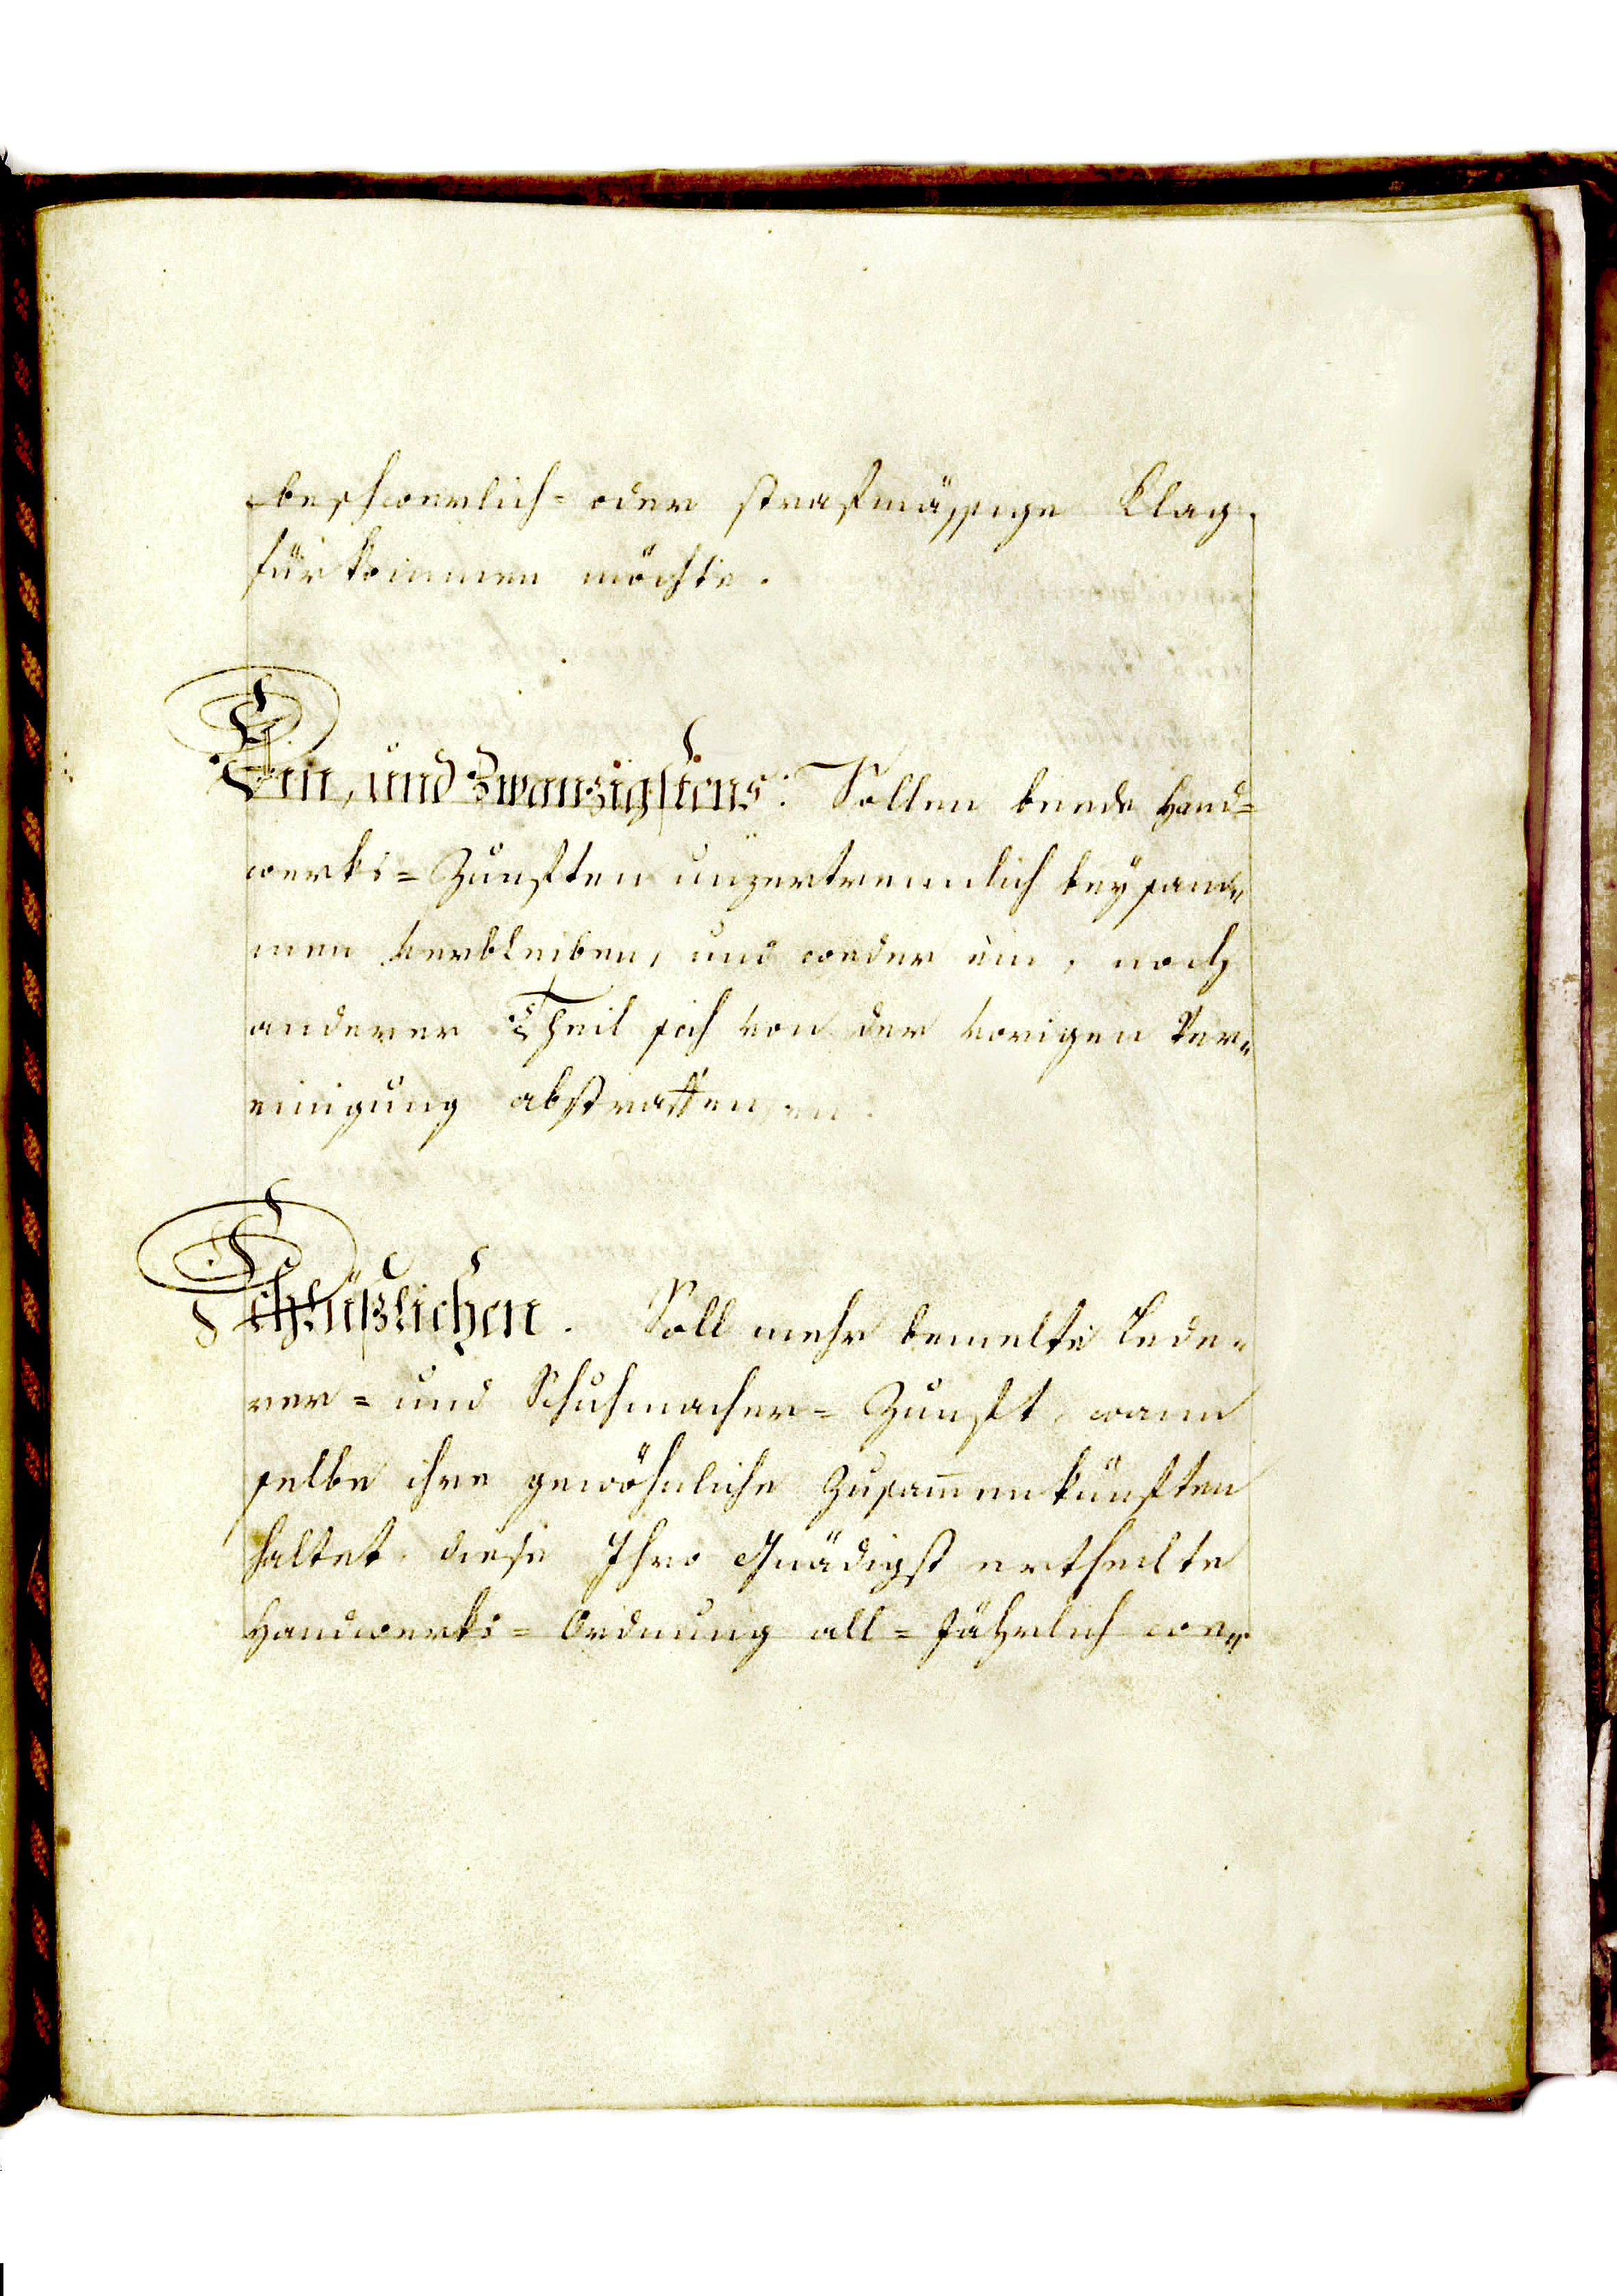 beschwerlich= oder strafmässige Klag
für kommen möchte.
Ein, und Zwanzigstens: Sollen beede Hand=
werks=Zunften unzertrennlich beysam„
men verbleiben, und weder ein, noch
anderer Theil sich von der vorigen Ver„
einigung abstratten
Schlüßlichen. Soll mehr bemelte Lede„
rer= und Schuhmacher=Zunft, wann
selbe ihre gewöhnliche Zusam̄enkünften
haltet, diese Ihro Gnädigst ertheilte
Handwerks=Ordnung all=Jährlich we„